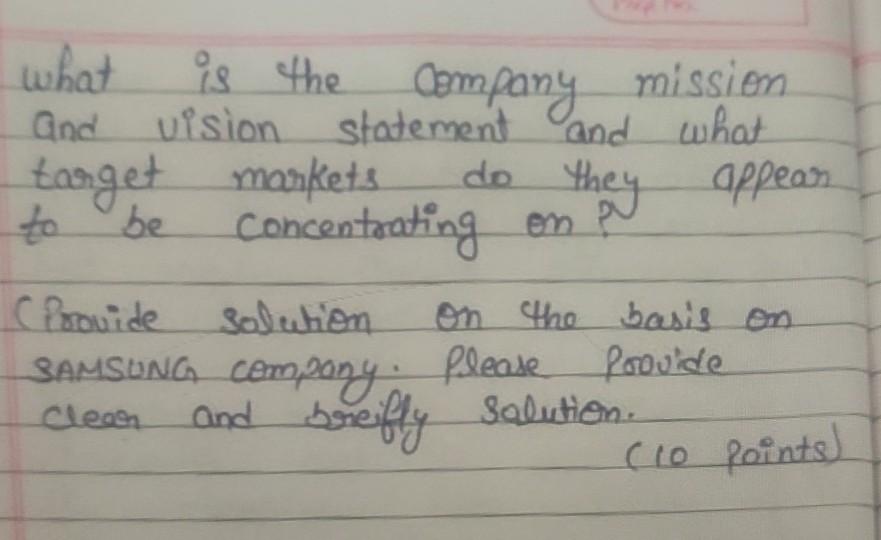 what is the Company mission
and vision statement and what
target markets do they appear
to be concentrating on?
(Provide solution on the basis on
SAMSUNG company. Please Provide
clear and breifly solution.
(10 Points)